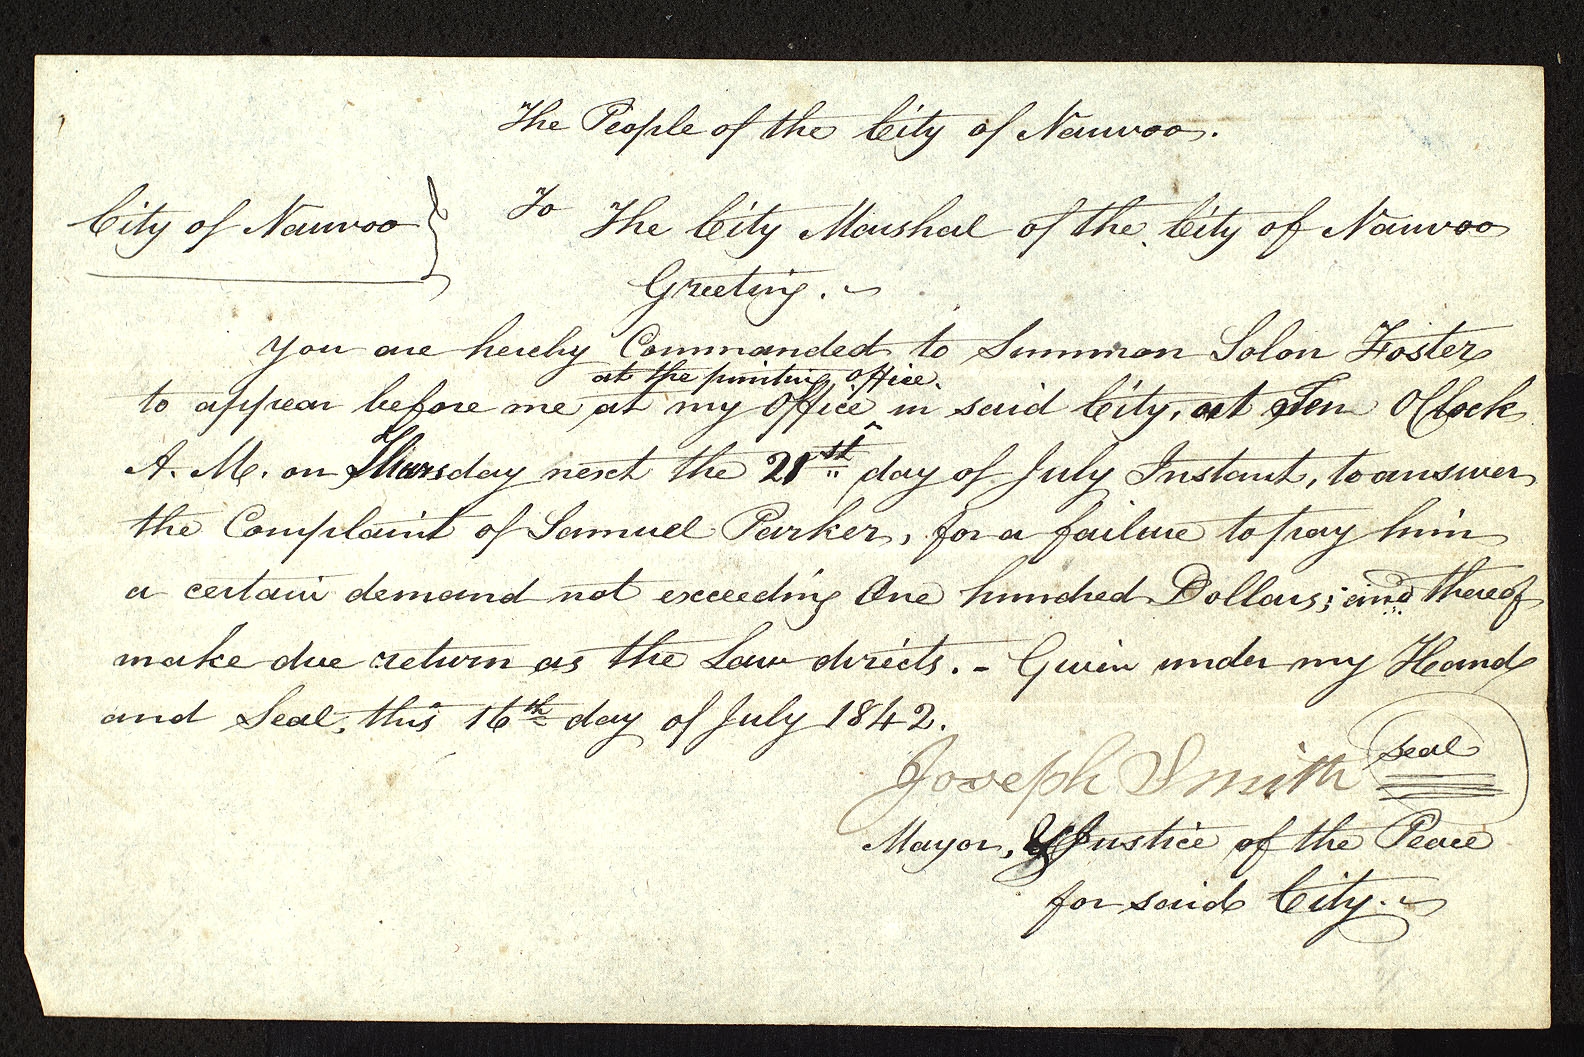 The People of the City of Nauvoo.
City of Nauvoo } To The City Marshal of the City of Nauvoo
Greeting.
You are hereby Commanded to Summon Solon Foster
at the printing office.
to appear before me at my Office in said City, at Ten OClock
A. M. on Thursday next the 21st day of July Instant, to answer
the Complaint of Samuel Parker, for a failure to pay him
a certain demand not exceeding One hundred Dollars; and thereof
make due return as the Law directs. - Given under my Hand
and Seal, this 16th day of July 1842.
Joseph Smith seal
Mayor, & Justice of the Peace
for said City.